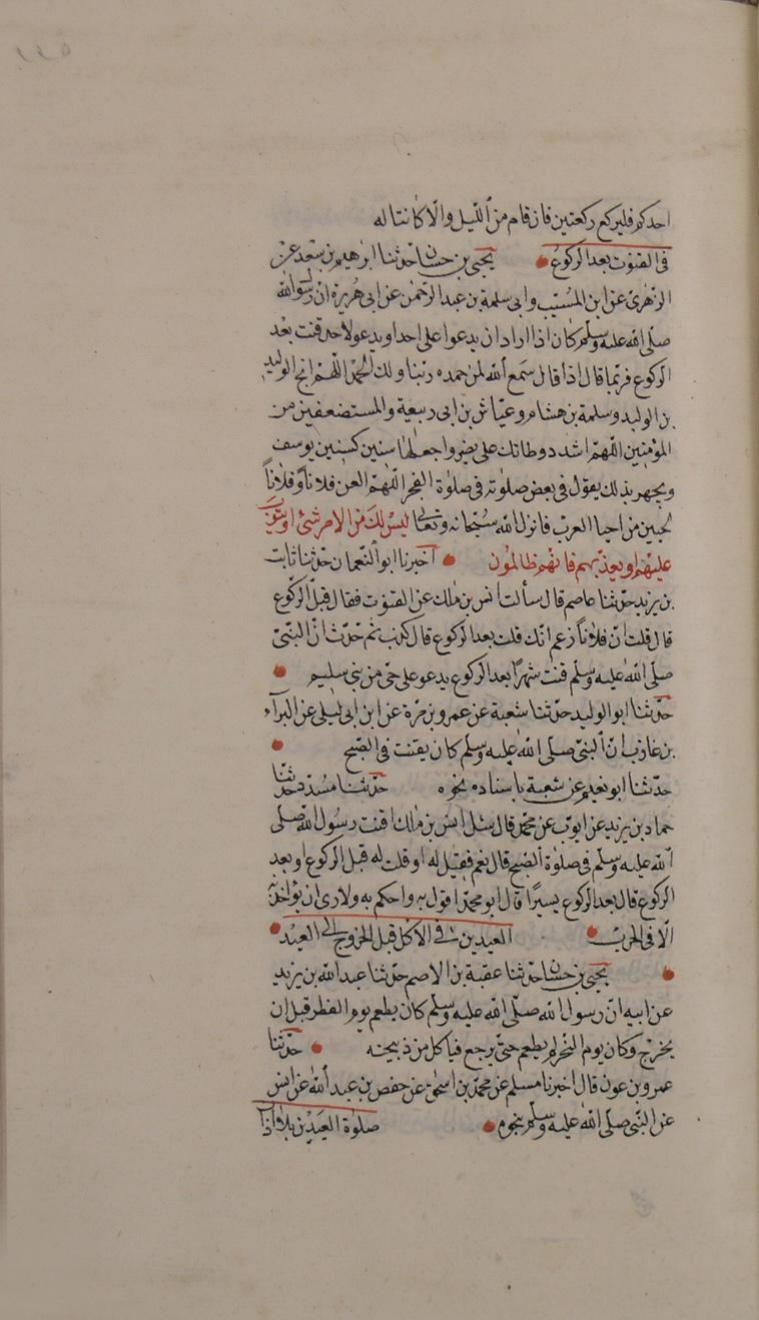 احدكم فليركع ركعتين فان قام من الليل والا كانتا له
فى القنوت بعد الركوع يحيى بن حسان حدثنا ابرهيم بن سعد عن
الزهرى عن ابن المسيب وابى سلمة بن عبد الرحمن عن ابى هريرة ان رسول الله
صلى الله عليه وسلم كان اذا اراد ان يدعوا على احد او يدعو لاحد قنت بعد
الركوع فربما قال اذا قال سمع الله لمن حمده ربنا ولك الحمد اللهم انج الوليد
بن الوليد وسلمة بن هشام وعياش بن ابى ربيعة والمستضعفين من
المؤمنين اللهم اشدد وطاتك على مضر واجعلها سنين كسنين يوسف
ويجهر بذلك يقول فى بعض صلوته فى صلوة الفجر اللهم العن فلانا وفلانا
لحيين من احيا العرب فانزل الله سبحانه وتعالى ليس لك من الامر شئ او يتوب
عليهم او يعذبهم فانهم ظالمون اخبرنا ابو النعمان حدثنا ثابت
بن يزيد حدثنا عاصم قال سألت انس بن ملك عن القنوت فقال قبل الركوع
قال قلت ان فلانا زعم انك قلت بعد الركوع قال كذب ثم حدث ان النبى
صلى الله عليه وسلم قنت شهرا بعد الركوع يدعو على حى من بنى سليم
حدثنا ابو الوليد حدثنا شعبة عن عمرو بن مرة عن ابن ابى ليلى عن البرآء
بن عازب ان النبى صلى الله عليه وسلم كان يقنت فى الصبح
حدثنا ابو نعيم عن شعبة باسناده نحوه حدثنا مسدد حدثنا
حماد بن يزيد عن ايوب عن محمد قال سئل انس بن ملك اقنت رسول الله صلى
الله عليه وسلم فى صلوة الصبح قال نعم فقيل له او قلت له قبل الركوع او بعد
الركوع قال بعد الركوع يسيرا قال ابو محمد اقول به واحكم به ولا ارى ان يؤاخذ
الا فى الحرب العيدين فى الاكل قبل الخروج الى العيد
يحيى بن حسان حدثنا عقبة بن الاصم حدثنا عبد الله بن يزيد
عن ابيه ان رسول الله صلى الله عليه وسلم كان يطعم يوم الفطر قبل ان
يخرج وكان يوم النحر لم يطعم حتى يرجع فياكل من ذبيحته حدثنا
عمرو بن عون قال اخبرنا مسلم عن محمد بن اسحق عن حفص بن عبد الله عن انس
عن النبى صلى الله عليه وسلم بنحوه صلوة العيدين بلا اذا